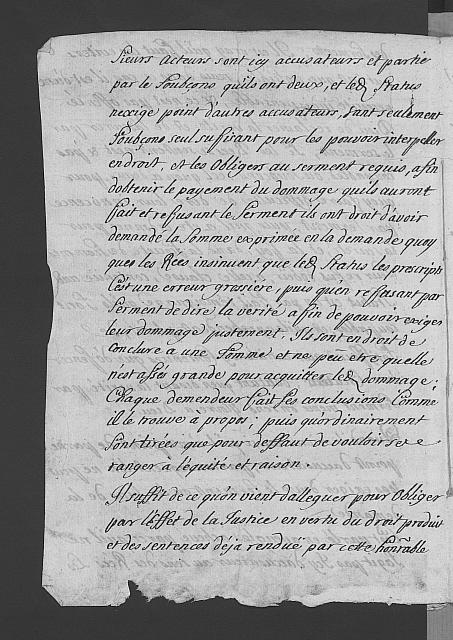 Sieurs Acteurs sont icy accusateurs et partie
par le Soubçons qu'ils ont deux, et led Status
nexige point d'autres accusateurs, tant seulement
Soubçons seul suffisant pour les pouvoir interpeller
en droit, et les Obligers au serment requis, afin
d'obtenir le payement du dommage qu'ils auront
fait et reffusant le Serment ils ont droit d'avoir
demandé la Somme exprimée en la demande quoy
que les Rées insinuent que led Status les prescript
C'est une erreur grossiére, puis qu'en reffusant par
Serment de dire la verité afin de pouvoir exiger
leur dommage justement, Ils sont en droit de
conclure a une Somme et ne peu etre quelle
n'est assés grande pour acquitter led dommage;
Chaque demendeur fait ses conclusions Comme
il le trouve à propos; puis qu'ordinairement
Sont tirées que pour deffaut de vouloir se
ranger a l'équité et raison.
Il suffit de ce qu'on vient d'alleguer pour Obliger
par l'Effet de la Justice en vertu du droit produit
et des sentences déja rendue par cette honrable